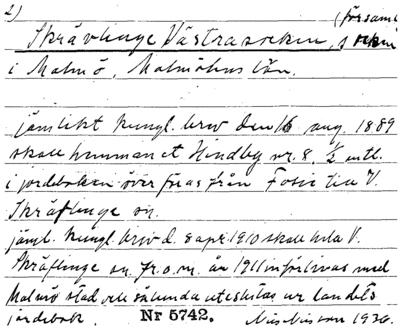 2) (församl
Skrävlinge Västra socken, socken
i Malmö, Malmöhus län.
jämlikt kungl. brev den 16 aug. 1889
skall hemmanet Hindby nr. 8, 1/2 mtl.
i jordeboken överföras från Fosie till V.
Skräflinge sn.
jäml. kungl. brev d. 8 apr. 1910 skall hela V.
Skräflinge sn. fr. o. m. år 1911 införlivas med
Malmö stad och sålunda uteslutas ur landets
jordebok. Nr 5742. 1936.